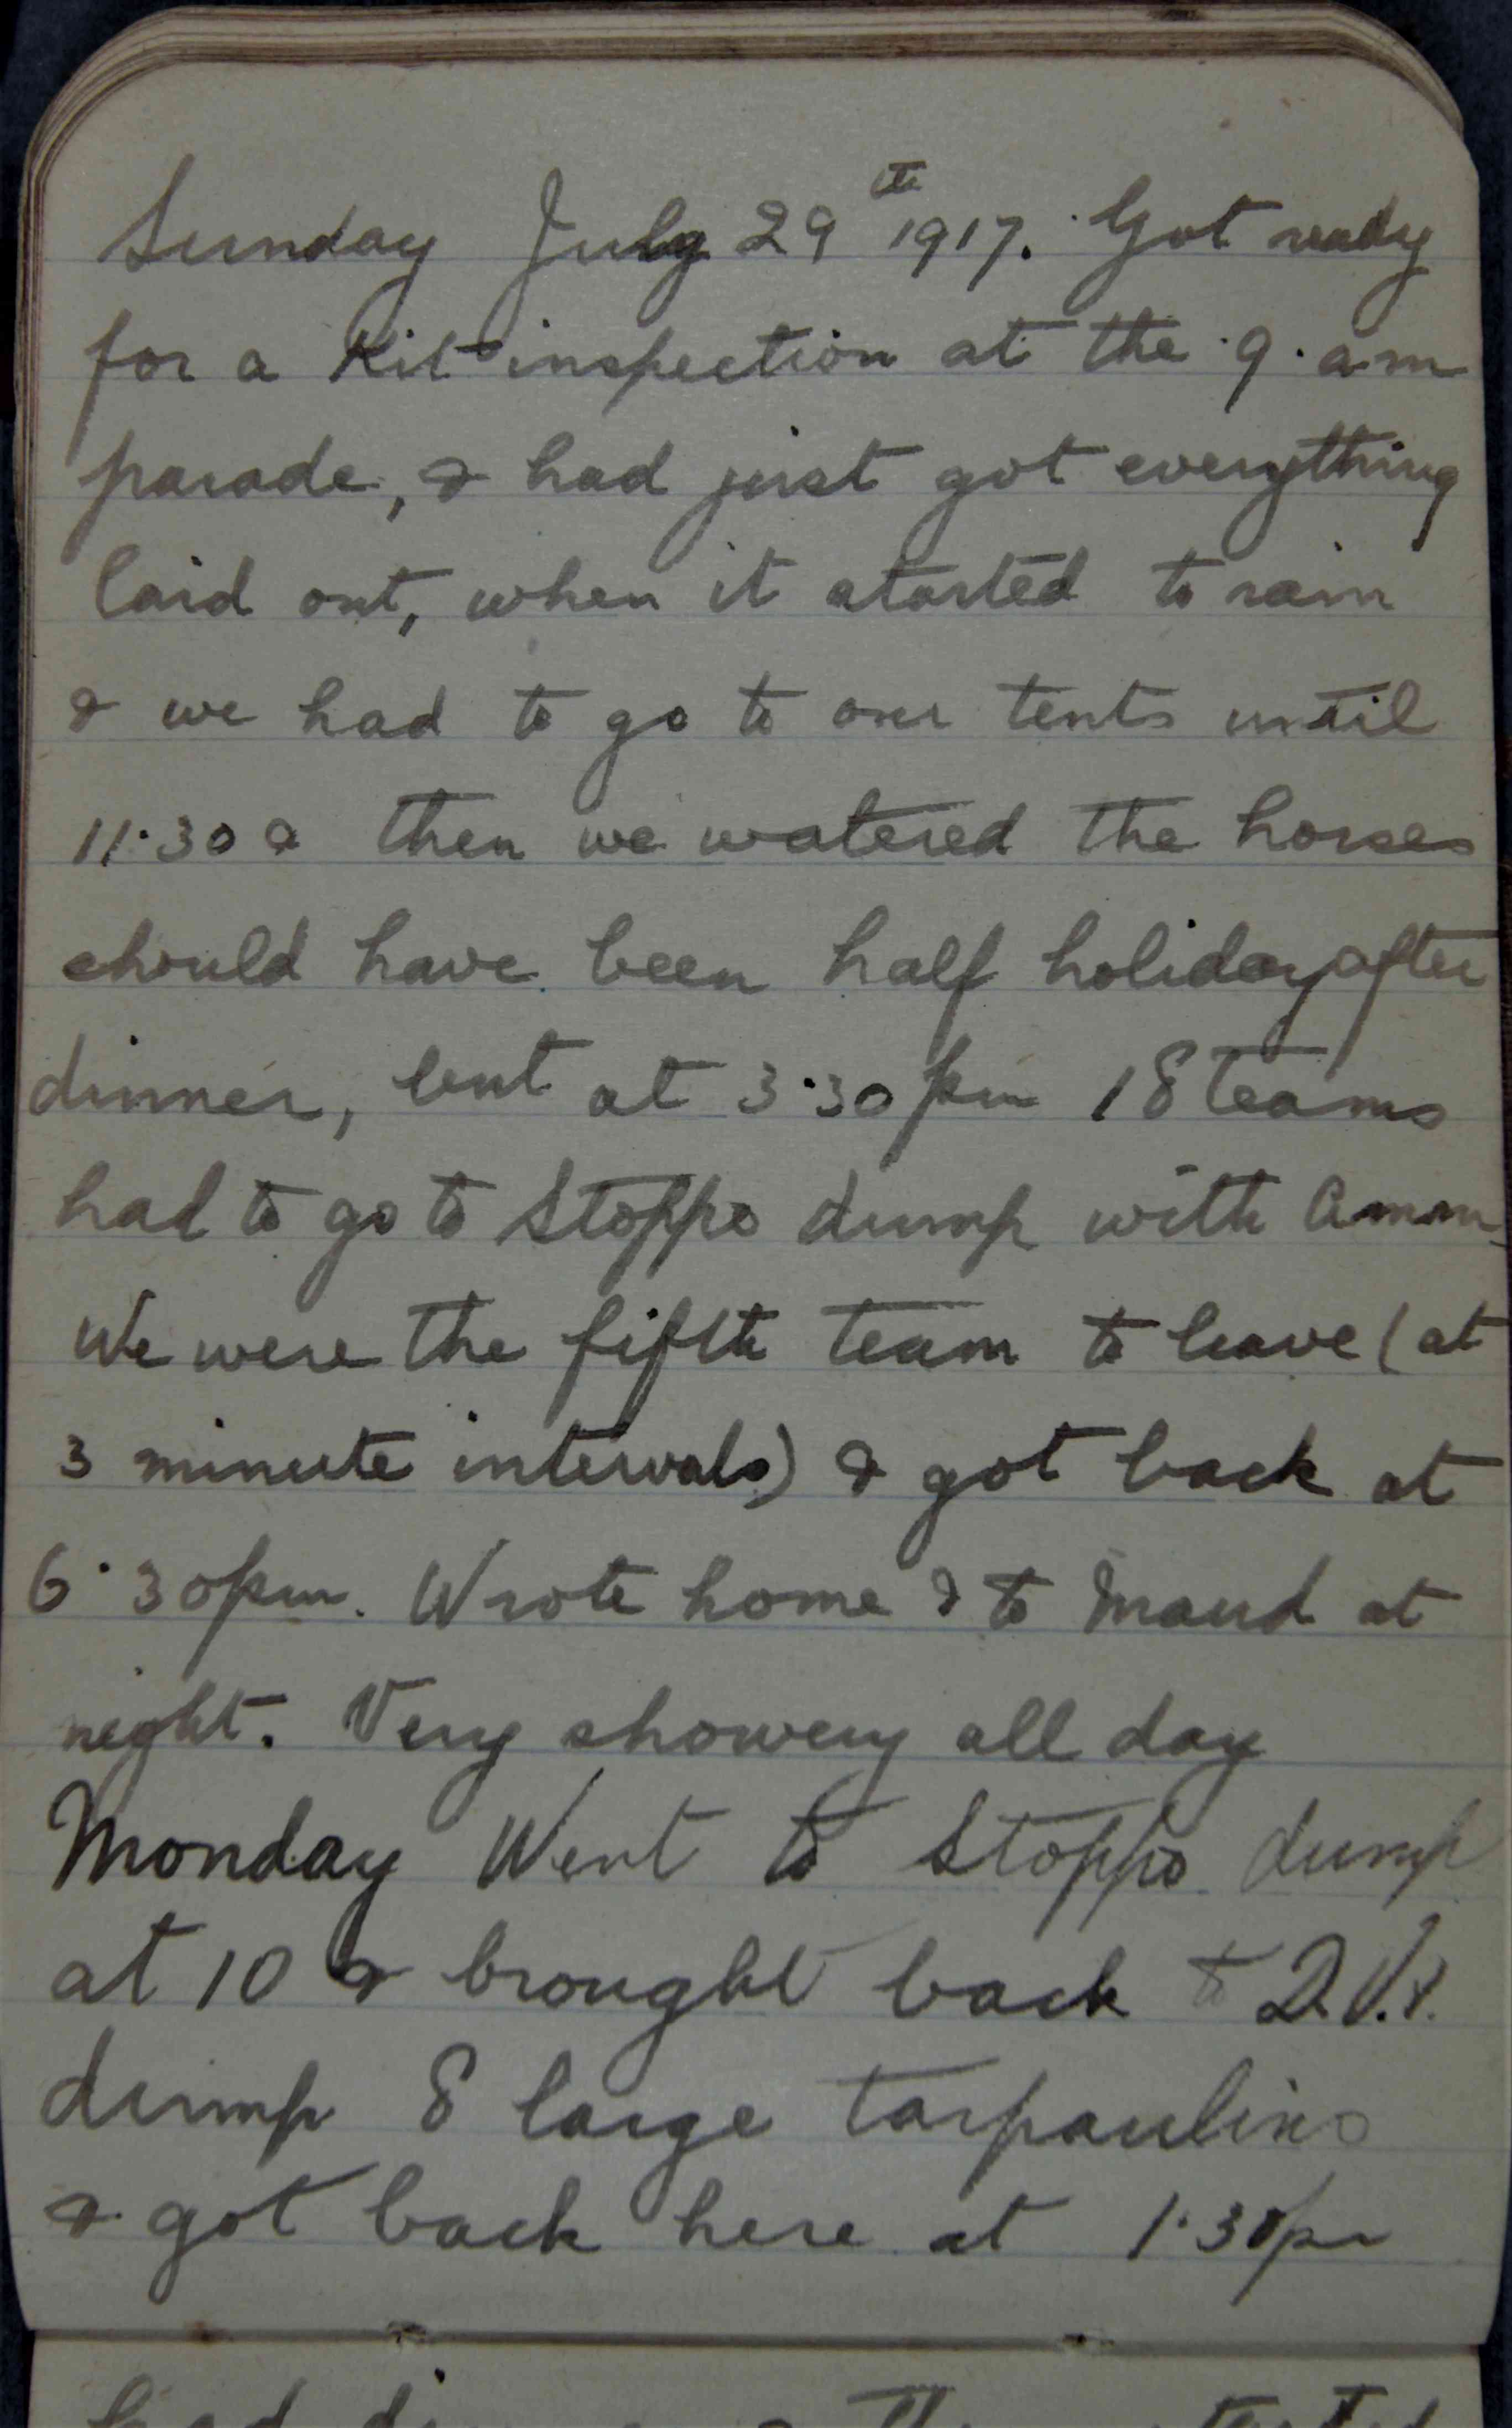 Sunday July 29th 1917. Got ready
for a Kit inspection at the 9. am
parade, & had just got everything
laid out, when it started to rain
& we had to go to our tents until
11.30 & then we watered the horses
should have been half holiday after
dinner, but at 3.30 pm 18 teams
had to go to Stopps dump with Ammn,
We were the fifth team to leave (at
3 minute intervals) & got back at
6.30 pm. Wrote home & to Maud at
night. Very showery all day
Monday Went to Stopps dump
at 10 & brought back to
dump 8 large tarpaulins
& got back here at 1.30 pm